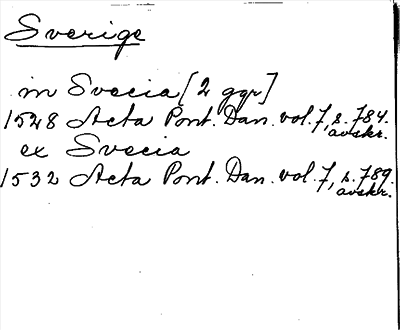 Sverige
in Svecia [2 ggr]
1528 Acta Pont. Dan. vol. 7, s. 784.
avskr.
ex Svecia
1532 Acta Pont. Dan. vol. 7, s. 789.
avskr.